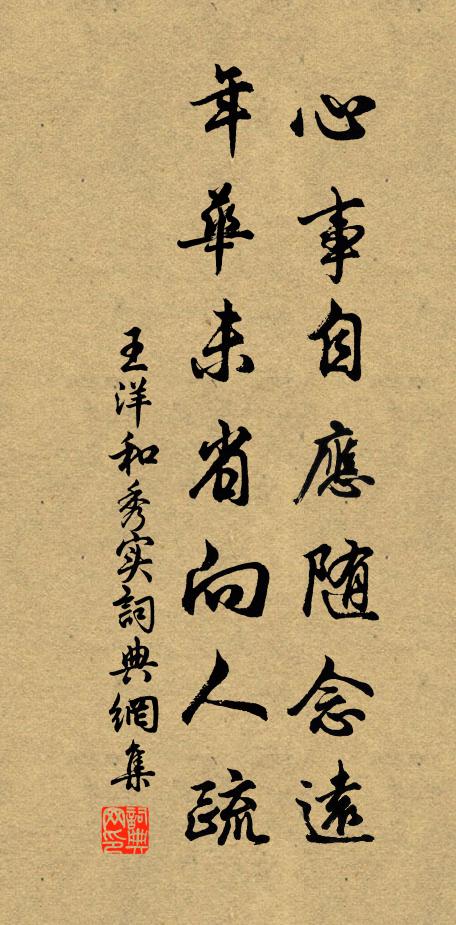 心事自應随念遠
年華未省向人疏
王洋和秀实詞典網集
詞典网印